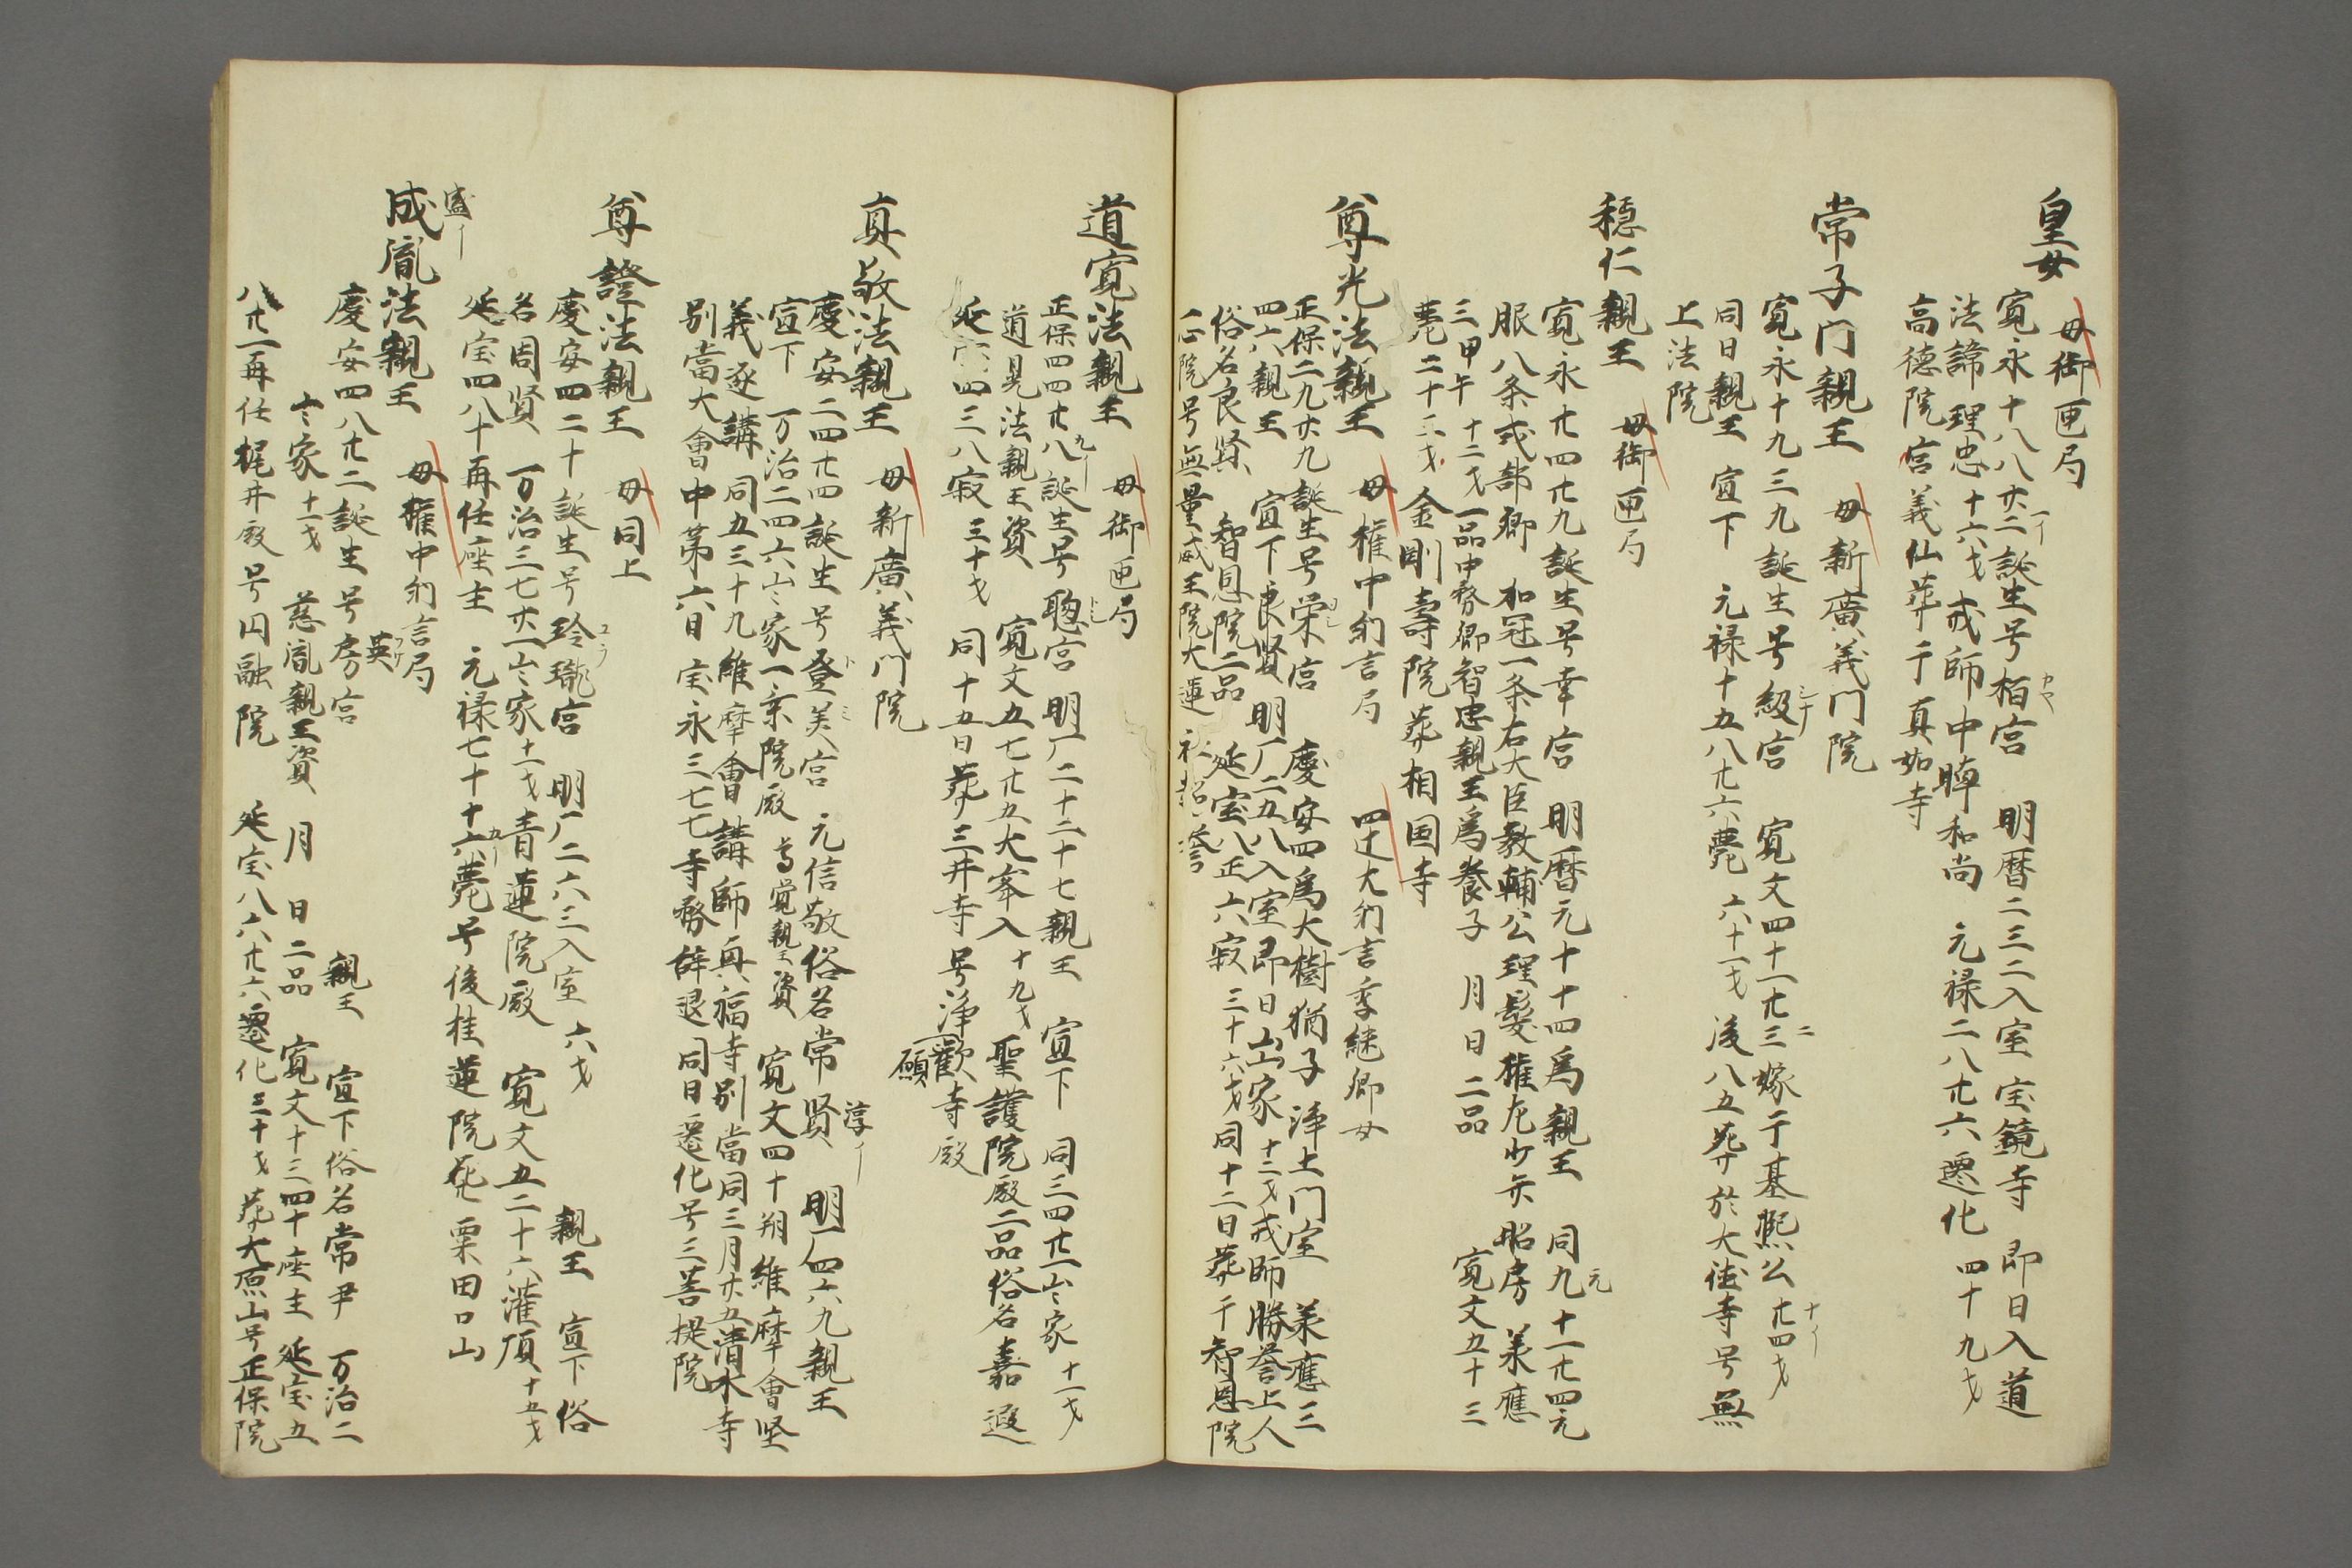 皇女
母御匣局
寛永十八八廿二誕生号栢宮 明暦二三二入室宝鏡寺 即日入道
法諱理忠十六才戒師中暐和尚 元禄二八廿六遷化 四十九才
高徳院宮義仙葬于真如寺
常子門親王 母新廣義門院
寛永十九三九誕生号級宮 寛文四十一廿三嫁于基熈公廿四才
同日親王宣下 元禄十五八廿六薨 六十一才 後八五葬於大徳寺号無
上法院
穏仁親王 母御匣局
寛永廿四廿九誕生号幸宮 明暦元十十四為親王 同九十一廿四元
服八条式部卿 加冠一条右大臣教輔公理髪権左少弁昭房 兼應
三甲午十二才一品中務卿智忠親王為養子 月日二品 寛文五十三
薨二十三才 金剛壽院葬相国寺
尊光法親王 母権中納言局 四辻大納言季継卿女
正保二九廿九誕生号栄宮 慶安四為大樹猶子 浄土門室 兼應三
四六親王宣下良賢 明厂二五八入室即日出家十二才戒師勝誉上人
俗名良賢 智恩院二品 延宝八正六寂三十六才同十二日葬于智恩院
院号無量威王院大蓮社超誉
道寛法親王 母御匣局
正保四四廿八誕生号聡宮 明厂二十二十七親王宣下 同三四廿一出家十一才
道晃法親王資 寛文五七廿五大峯入十九才聖護院殿二品俗名嘉遐
延宝四三八寂 三十才 同十五日葬三井寺号浄願寺殿
歡
真敬法親王 母新廣義門院
慶安二四廿四誕生号登美宮 元信敬俗名常賢 明一四六九親王
宣下 万治二四六出家一乗院殿 尊覚親王資 寛文四十朔維摩會竪
義逐講 同五三十九維摩會講師興福寺別當同三月廿五清水寺
別當大會中第六日宝永三七七寺務辞退同日遷化号三菩提院
尊證法親王 母同上
慶安四二十誕生号玲瓏宮 明厂二六三入室六才 親王宣下俗
名周賢 万治三七廿一出家十一才青蓮院殿 寛文五二十六灌頂十五才
延宝四八十再任座主 元禄七十十六薨号後桂蓮院葬粟田口山
成胤法親王 母権中納言局
盛イ
慶安四八廿二誕生号房宮 親王宣下俗名常尹 万治二
英
出家十一才 慈胤親王資 月日二品 寛文十三四十座主 延宝五
八廿一再任梶井殿号円融院 延宝八六廿六遷化三十才葬大原山号正保院